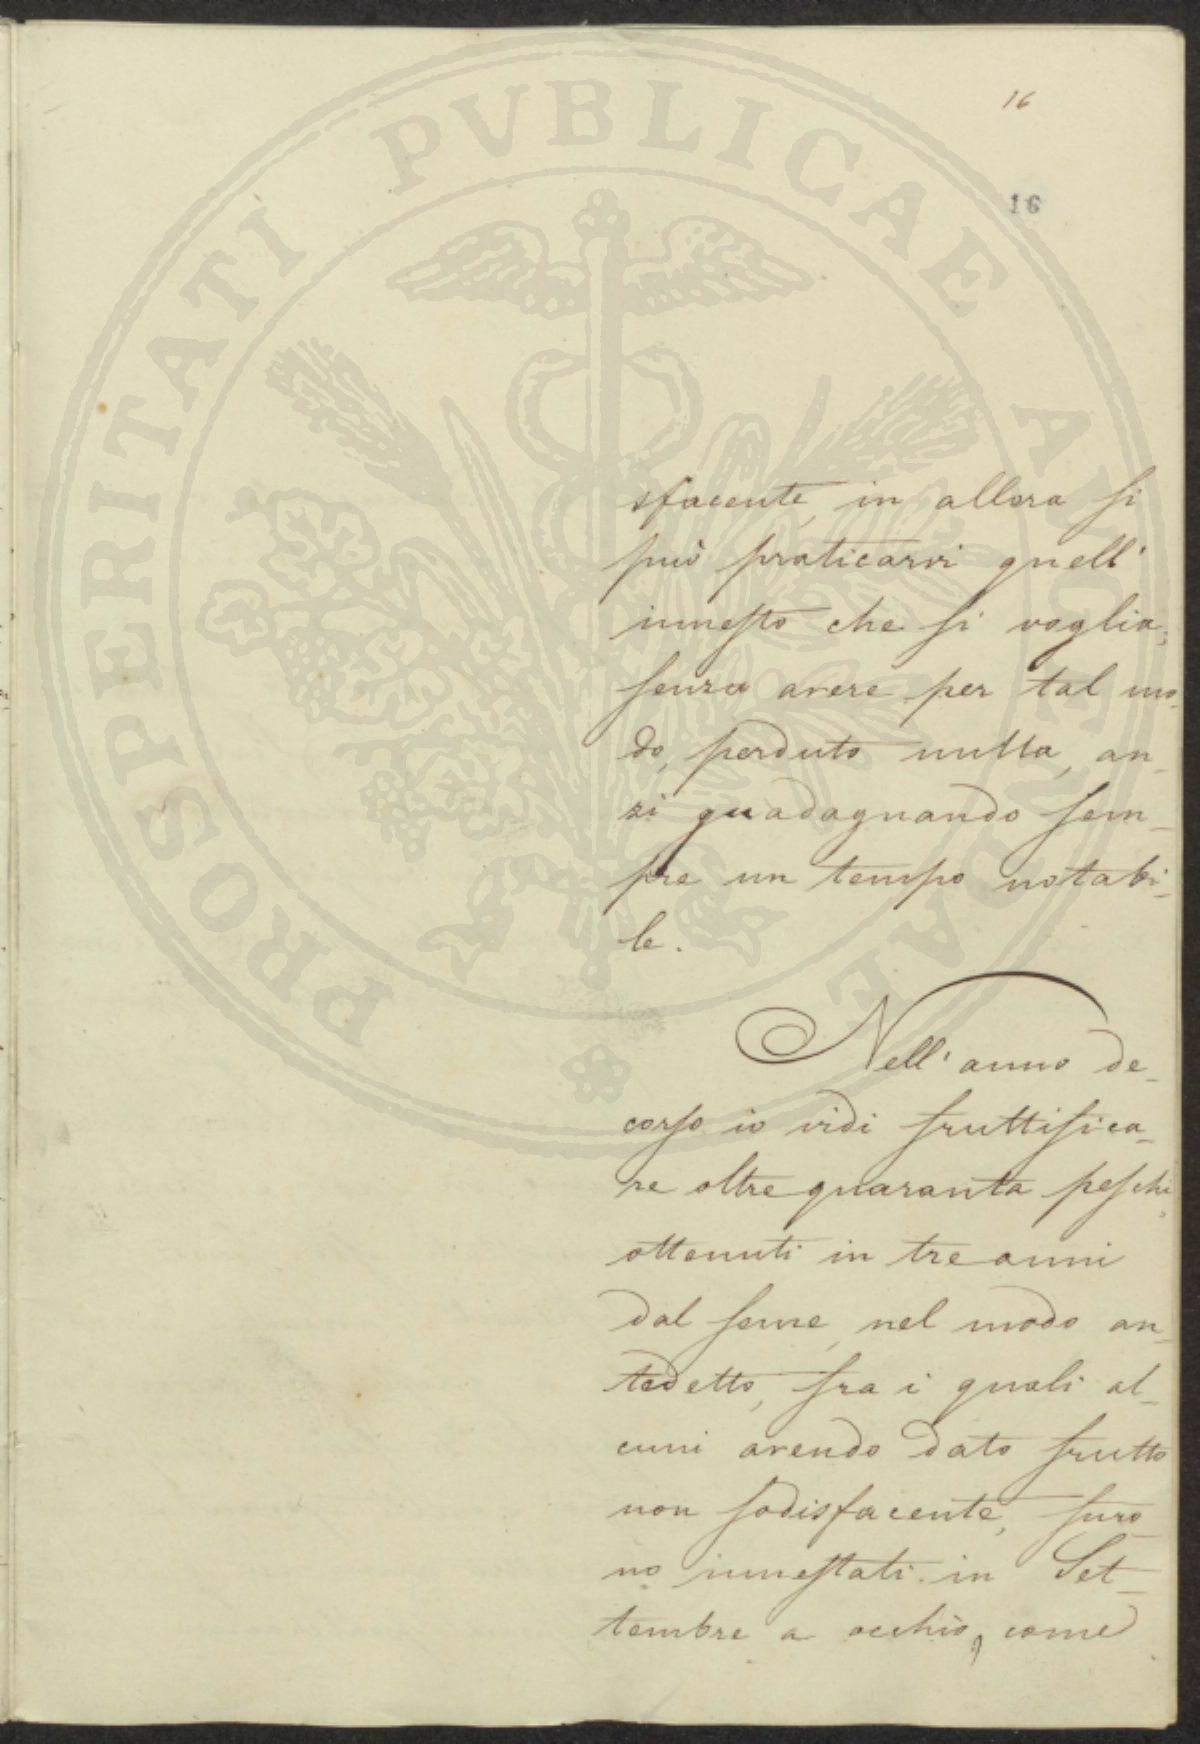 16
16
PROSPERITATI PVBLICAE AVGENDAE
sfacente, in allora si
può praticarvi quell'
innesto che si voglia,
senza avere per tal mo-
do, perduto nulla, an-
zi guadagnando sem-
pre un tempo notabi-
le.
Nell'anno de-
corso io vidi fruttifica-
re oltre quaranta peschi,
ottenuti in tre anni
dal seme, nel modo an-
tedetto, fra i quali al-
cuni avendo dato frutto
non sodisfacente, furo-
no innestati in Set-
tembre a occhio, come